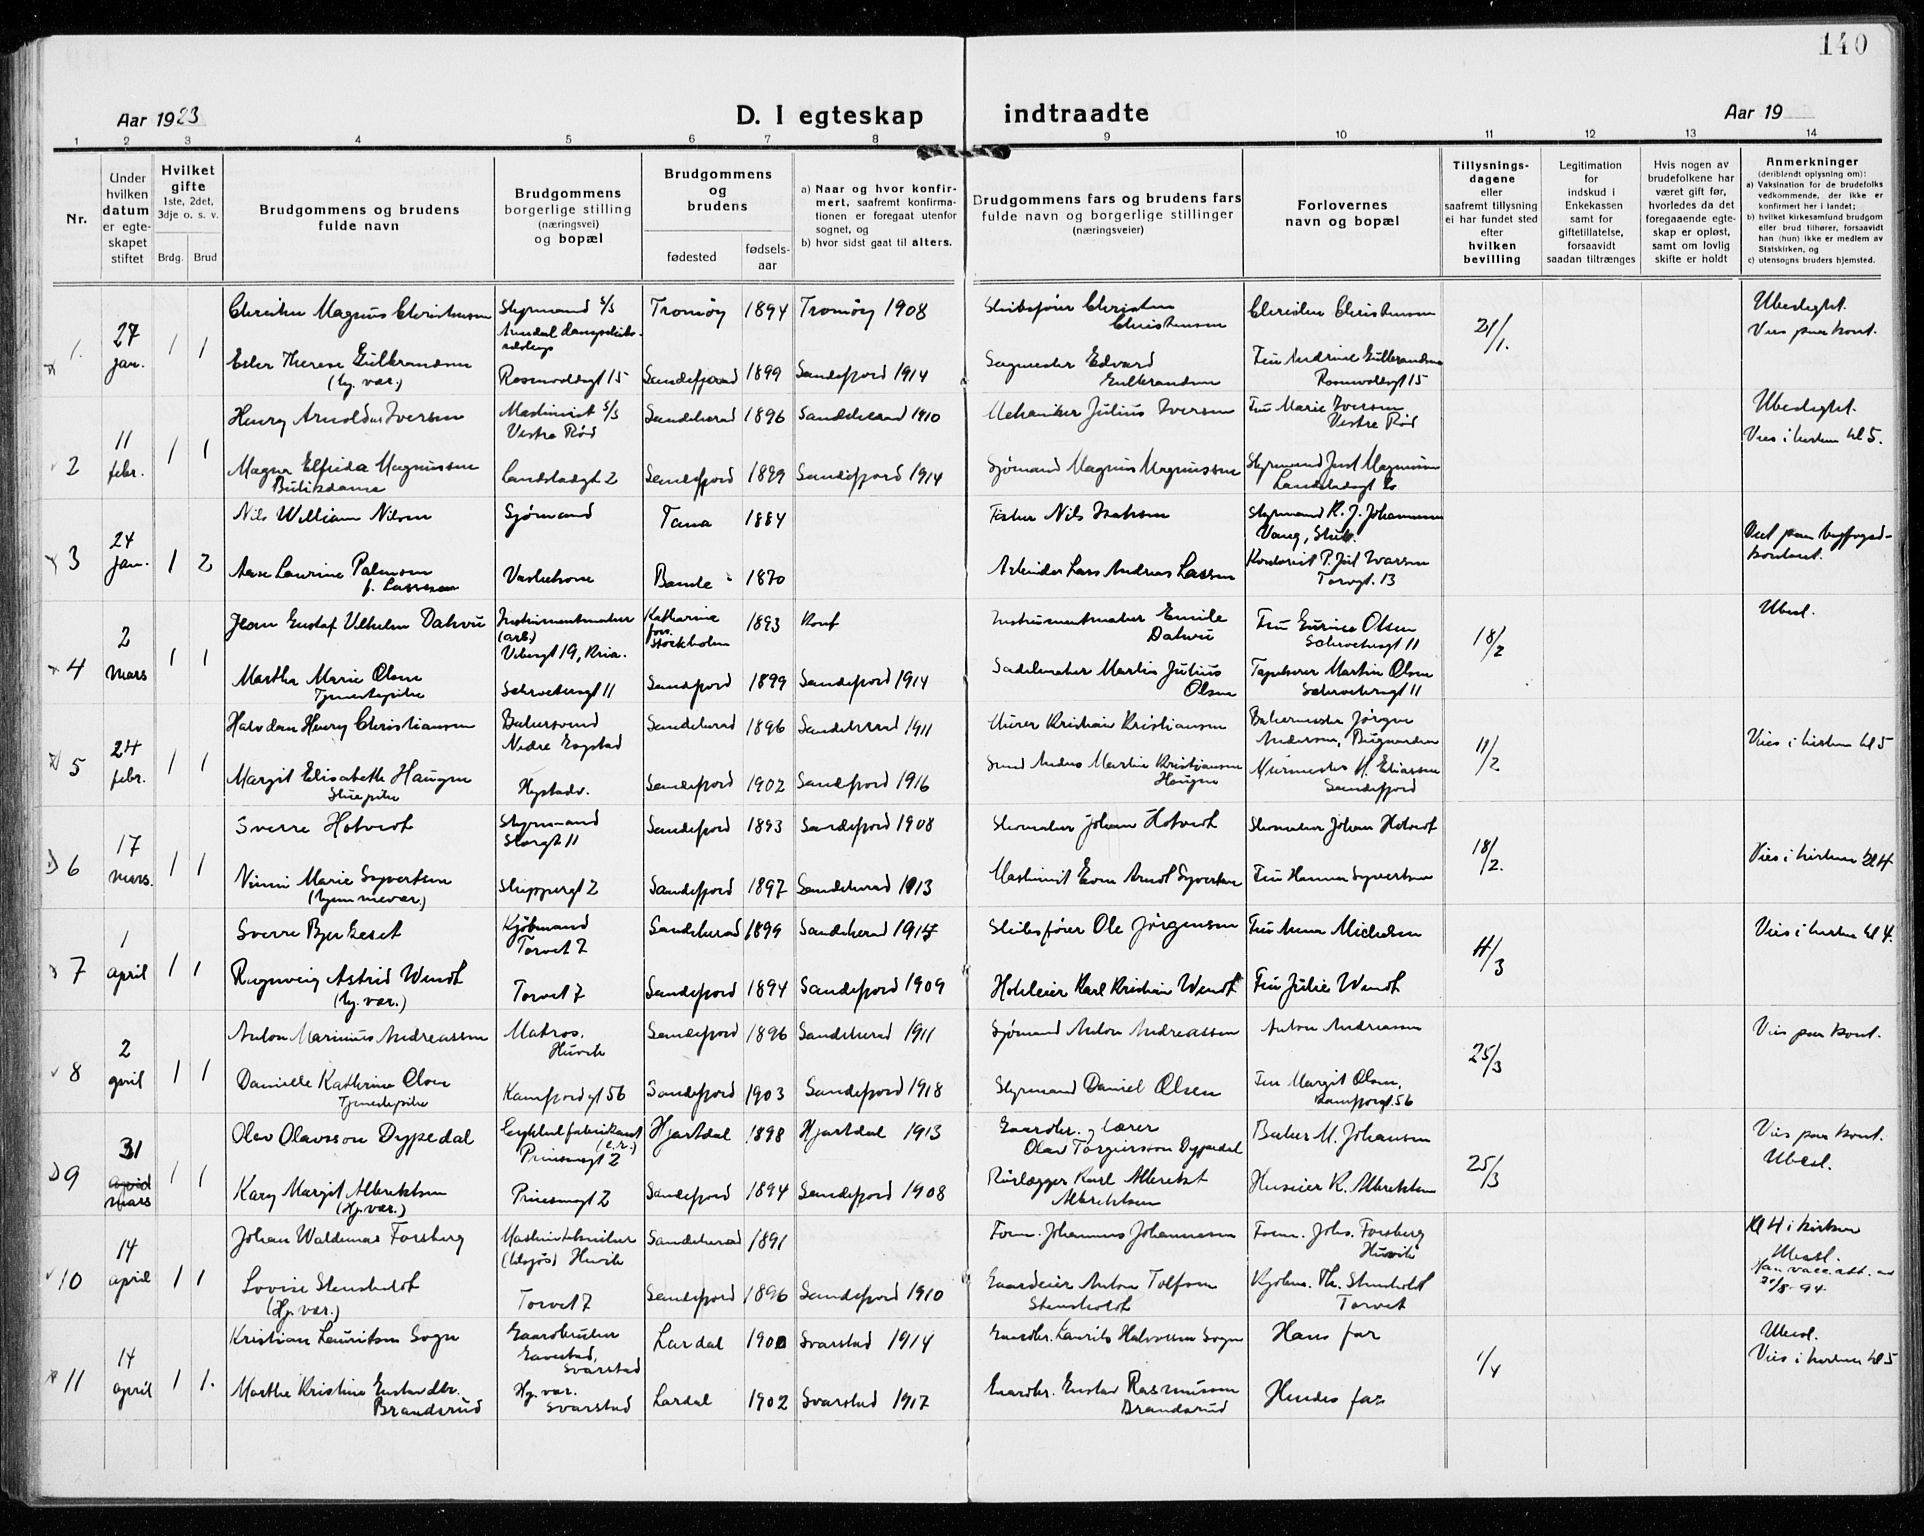 140
Aar 1923
D. I egteskap indtraadte
Aar 19
1 2 3 4 5 6 7 8 9 10 11 12 13 14
Nr.
Under hvilken datum er egteskapet stiftet
Hvilket gifte 1ste, 2det, 3dje o. s. v.
Brdg. Brud
Brudgommens og brudens fulde navn
Brudgommens borgerlige stilling (næringsvei) og bopæl
Brudgommens og brudens
fødested
fødselsaar
a) Naar og hvor konfirmert, saafremt konfirmationen er foregaat utenfor sognet, og
b) hvor sidst gaat til alters.
Brudgommens fars og brudens fars fulde navn og borgerlige stillinger (næringsveier)
Forlovernes navn og bopæl
Tillysningsdagene eller saafremt tillysning ei har fundet sted efter hvilken bevilling
Legitimation for indskud i Enkekassen samt for giftetillatelse, forsaavidt saadan tiltrænges
Hvis nogen av brudefolkene har været gift før, hvorledes da det foregaaende egteskap er opløst, samt om lovlig skifte er holdt
Anmerkninger (deriblendt oplysning om):
a) Vaksination for de brudefolks vedkommende, der ikke er konfirmert her i landet;
b) hvilket kirkesamfund brudgom eller brud tilhører, forsaavidt han (hun) ikke er medlem av Statskirken, og
c) utensogns bruders hjemsted.
1. 27 jan. 1 1
Christen Magnus Christensen Styrmand S/S Tromøy 1894 Tromøy 1908 Skibsfører Christen Christensen Christen Christensen 21/1. Ubeslegtet. Vies paa kont.
Ester Therese Gulbrandsen (hj. vær.) Rosenvoldsgt 15 Sandefjord 1899 Sandefjord 1914 Sagmester Edvard Gulbrandsen Fru Andrine Gulbrandsen Rosenvoldsgt 15
2 11 febr. 1 1
Henry Arnoldus Iversen Maskinist S/S Vestre Rød Sandeherad 1896 Sandeherad 1910 Mekaniker Julius Iversen Fru Marie Iversen Vestre Rød Ubeslegtet. Vies i kirken kl 5.
Magna Elfrida Magnussen Butikdame Landstadsgt 2 Sandefjord 1899 Sandefjord 1914 Sjømand Magnus Magnussen Styrmand Just Magnussen Landstadsgt 2
3 24 jan. 1 2
Nils William Nilsen Sjømand Tana 1884 Fisker Nils Isaksen Styrmand K. J. Johannesen Viet paa byfogedkontoret.
Aase Laurine Palmson f. Lassesen Bamle 1870 Arbeider Lars Andreas Lassen Torvgt. 13
4 2 mars 1 1
Jean Gustaf Vilhelm Dahvid Instrumentmaker (arb.) Vibesgt 19, Kria. Katharina fors. Stockholm 1893 Konf Instrumentmaker Emile 18/2 Ubesl.
Martha Marie Olsen Tjenestepike Sandefjord 1899 Sandefjord 1914 Sadelmaker Martin Julius Olsen Tapetserer Martin Olsen
5 24 febr. 1 1
Halvdan Henry Christiansen Bakersvend Nedre Sandeherad 1896 Sandeherad 1911 Murer Kristian Kristiansen Bakermester Jørgen Andersen, Bugaarden 11/2 Vies i kirken kl 5
Margit Elisabeth Haugen Stuepike Hystadv. Sandefjord 1902 Sandefjord 1916 Smed Anders Martin Kristiansen Haugen Murmester H. Eliassen Sandefjord
6 17 mars. 1 1
Sverre Hotvedt Styrmand Storgt 11 Sandefjord 1893 Sandefjord 1908 Skomaker Johan Hotvedt Skomaker Johan Hotvedt 18/2. Vies i kirken kl 4
Ninni Marie Syvertsen (hjemmevær.) Skippergt 2 Sandefjord 1897 Sandeherad 1913 Maskinist Even Arndt Syvertsen Fru Hanna Syvertsen
7 1 april 1 1
Sverre Bjerkeset Kjøbmand Torvet 7 Sandeherad 1899 Sandeherad 1914 Skibsfører Ole Jørgensen Fru Anna Michelsen 4/3 Vies i kirken kl 4.
Ragnveig Astrid Wendt (hj. vær.) Torvet 7 Sandefjord 1894 Sandefjord 1909 Hoteleier Karl Kristian Wendt Fru Julie Wendt
8 2 april 1 1
Anton Marinius Andreassen Matros. Huvik Sandefjord 1896 Sandeherad 1911 Sjømand Anton Andreassen Anton Andreassen 25/3 Vies paa kont.
Danielle Kathrine Olsen Tjenestepike Kamfjordgt 56 Sandefjord 1903 Sandefjord 1918 Styrmand Daniel Olsen Fru Margit Olsen, Kamfjordgt. 56
9 31 april mars 1 1
Olav Olavsson Dypedal Cykkelfabrikant Prinsensgt 2 Hjartdal 1898 Hjartdal 1913 Gaardbr. og lærer Olav Torgiersson Dypedal Baker M. Johansen 25/3 Vies paa kont. Ubesl.
Kary Margit Albrektsen (Hj. vær.) Prinsensgt 2 Sandefjord 1894 Sandefjord 1908 Rørlægger Karl Albrekt Albrektsen Huseier K. Albrektsen
10 14 april 1 1
Johan Waldemar Forsberg Huvik Sandeherad 1891 Form. Johannes Johannessen Form. Johs. Forsberg Huvik Kl 4 i kirken Ubesl.
Lovise Stensholdt (Hj. vær.) Torvet 7 Sandefjord 1896 Sandefjord 1910 Gaardeier Anton Tolfsen Stensholdt Kjøbm. Th. Stensholdt Torvet
11 14 april 1 1.
Kristian Lauritsen Sogn Gaardbruker Gavestad, Svarstad Lardal 1900 Svarstad 1914 Gaardbr. Laurits Halvorsen Sogn Hans far 1/4 Ubesl. Vies i kirken kl 5
Marthe Kristine Gustavdtr. Brandsrud Hj. vær. Svarstad Lardal 1902 Svarstad 1917 Gaardbr. Gustav Rasmussen Brandsrud Hendes far